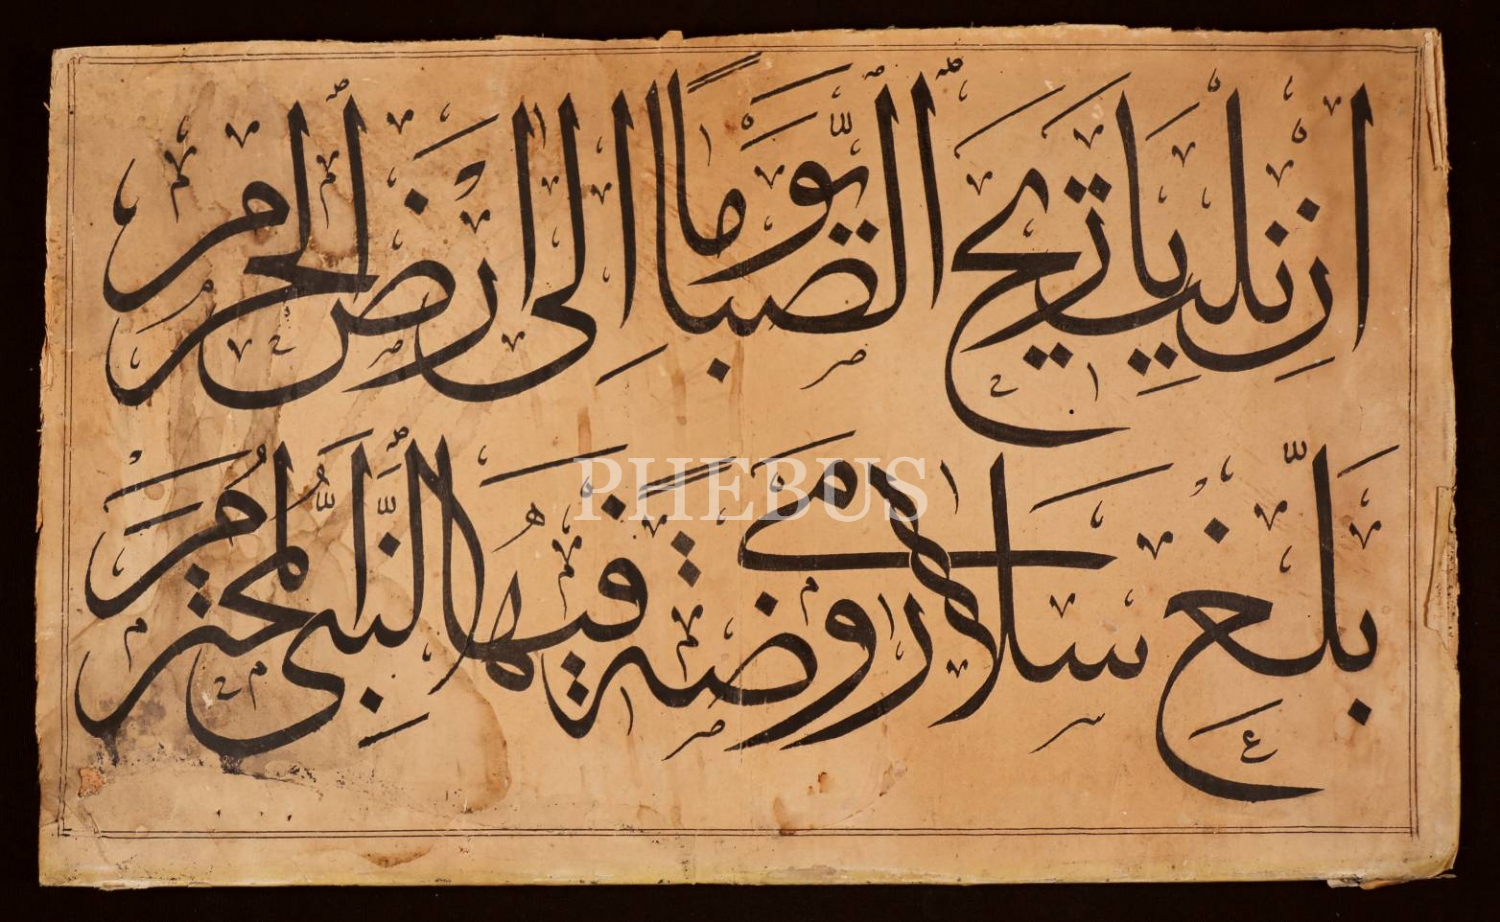 ان نلت يا ريح الصبا يوما الى ارض الحرم
بلغ سلامي روضة فيها النبي المحترم
PHEBUS